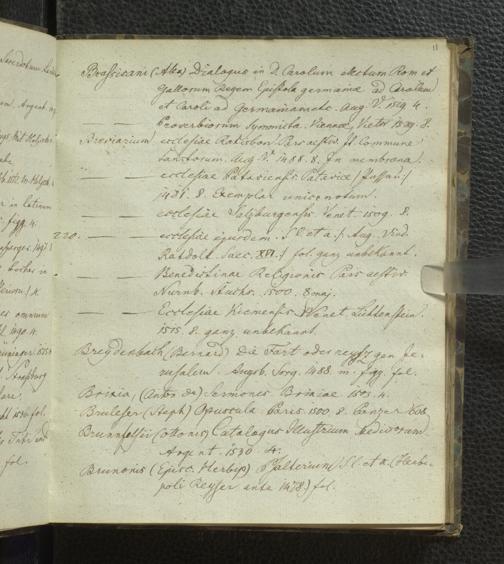 11
Brassicani (Alex) Dialogus in D. Carolum electum Rom et
Gallorum Regem Epistola germaniae ad Carolum
et Caroli ad Germaniam etc. Aug. V. 1519 4.
— Proverbiorum Symmicta. Viennae, Vietor 1529. 8.
Breviarium ecclesiae Ratisbon Pars aestiv et Commune
Sanctorum. Aug V. 1488. 8. In membrana!
— ecclesiae Pataviensis Pataviae (Passau)
8. Exemplar unice notum.
— ecclesiae Salzburgensis Venet. 1509. 8.
220. — ecclesiae ejusdem. S. l. et a. Aug. Vind.
Ratdolt. Saec. XVI. fol. ganz unbekannt.
— Benedictinae Religionis Pars aestiv
Nurnb. Stuchs. 1500. 8 maj.
— Ecclesiae Kiemensis Venet. Lichtenstein.
1515. 8. ganz unbekannt.
Breydenbach (Bernard) Die Fart oder reyss gen Je-
rusalem. Augsb. Sorg. 1488. m. figg. fol.
Brixia, (Anton de) Sermones Brixiae 1503. 4.
Brulefer (Steph) Opuscula. Paris 1500. 8. Panzer
Brunnfelsii (Ottonis) Catalogus Illustrium Medicorum
Argent. 1530 4.
Brunonis (Episc. Herbip) Psalterium S. l. et a. (Herbi-
poli Reyser ante 1478.) fol.